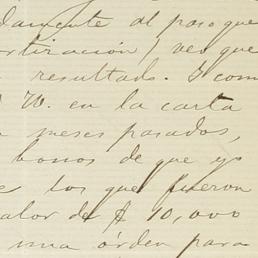 damente al paso que
ortización) veo que
resultado. I com
70. en la carta
meses pasados,
bonos de que yo
los que fueron
valor de $ 10,000
una órden para